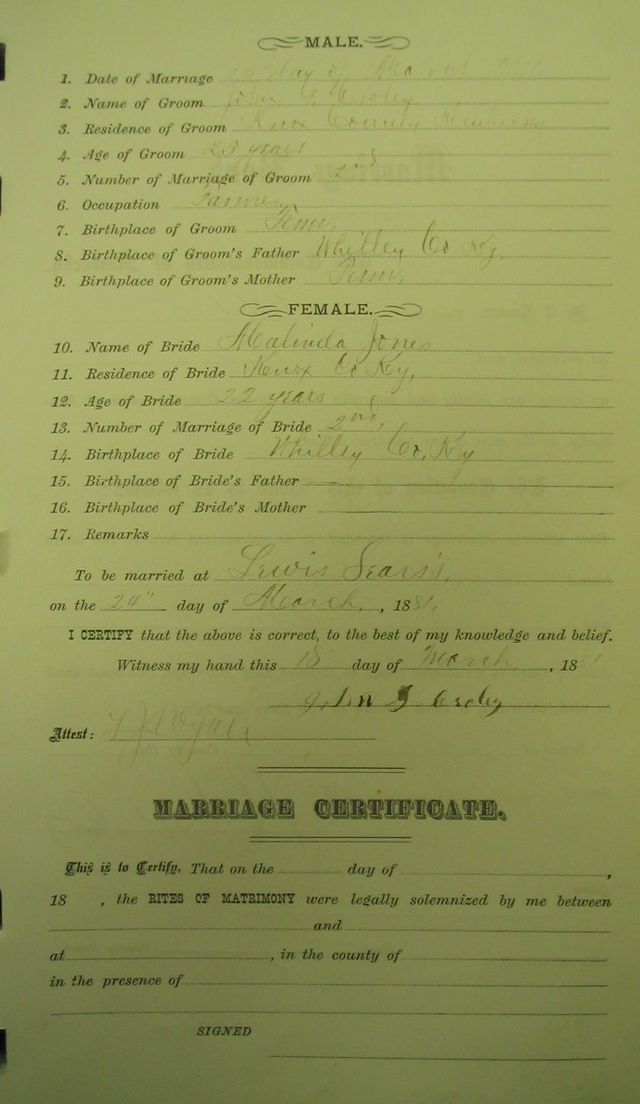 MALE.
1. Date of Marriage day of
2. Name of Groom
3. Residence of Groom Knox County
4. Age of Groom 25 years
5. Number of Marriage of Groom 2nd
6. Occupation Farmer
7. Birthplace of Groom Tenn.
8. Birthplace of Groom's Father Whitley Co Ky.
9. Birthplace of Groom's Mother Tenn.
FEMALE.
10. Name of Bride Malinda Jones
11. Residence of Bride Knox Co Ky,
12. Age of Bride 22 years
13. Number of Marriage of Bride 2nd,
14. Birthplace of Bride Whitley Co, Ky
15. Birthplace of Bride's Father
16. Birthplace of Bride's Mother
17. Remarks
To be married at Lewis Sears's,
on the 24" day of March, 1881,
I CERTIFY that the above is correct, to the best of my knowledge and belief.
Witness my hand this 18 day of March, 18
Attest:
MARRIAGE CERTIFICATE.
This is to Certify, That on the day of ,
18 , the RITES OF MATRIMONY were legally solemnized by me between
and
at , in the county of
in the presence of
SIGNED